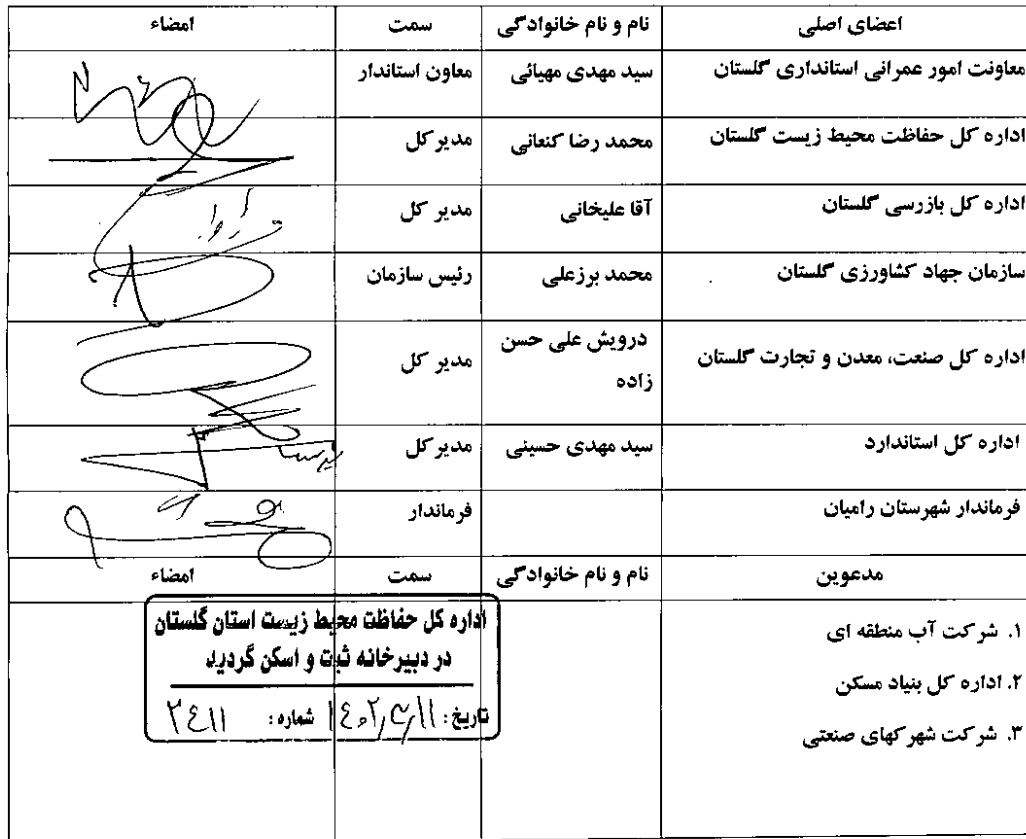 اعضای اصلی نام و نام خانوادگی سمت امضاء
معاونت امور عمرانی استانداری گلستان سید مهدی مهیائی معاون استاندار
اداره کل حفاظت محیط زیست گلستان محمد رضا کنعانی مدیر کل
اداره کل بازرسی گلستان آقا علیخانی مدیر کل
سازمان جهاد کشاورزی گلستان محمد برزعلی رئیس سازمان
اداره کل صنعت، معدن و تجارت گلستان درویش علی حسن مدیر کل
زاده
اداره کل استاندارد سید مهدی حسینی مدیر کل
فرماندار شهرستان رامیان فرماندار
مدعوین نام و نام خانوادگی سمت امضاء
۱. شرکت آب منطقه ای
۲. اداره کل بنیاد مسکن
۳. شرکت شهرکهای صنعتی
اداره کل حفاظت محیط زیست استان گلستان
در دبیرخانه ثبت و اسکن گردید
تاریخ: ۱۴۰۲/۳/۱۱ شماره: ۳۴۱۱